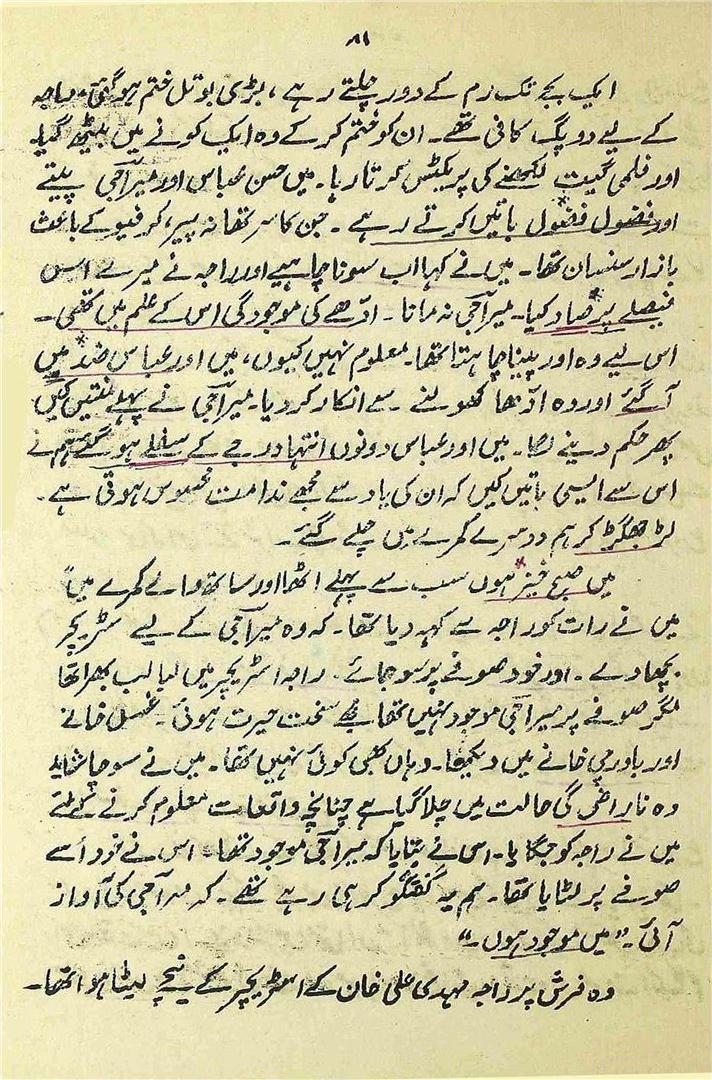 ۸۱
ایک بجے تک رم کے دور چلتے رہے، بڑی بوتل ختم ہو گئی۔ راجہ
کے لیے دو پگ کافی تھے۔ ان کو ختم کر کے وہ ایک کونے میں بیٹھ گیا۔
اور فلمی گیت لکھنے کی پریکٹس کرتا رہا۔ میں حسن عباس اور میراجی پیتے
اور فضول فضول باتیں کرتے رہے۔ جن کا سر تھا نہ پیر، کرفیو کے باعث
بازار سنسان تھا۔ میں نے کہا اب سونا چاہیے اور راجہ نے میرے اس
فیصلے پر صاد کیا۔ میراجی نہ مانا۔ ادّھے کی موجودگی اس کے علم میں تھی۔
اس لیے وہ اور پینا چاہتا تھا۔ معلوم نہیں کیوں، میں اور عباس ضد میں
آ گئے اور وہ ادّھا کھولنے سے انکار کر دیا۔ میراجی نے پہلے منتیں کیں
پھر حکم دینے لگا۔ میں اور عباس دونوں انتہا درجے کے سفلے ہو گئے ہم نے
اس سے ایسی باتیں کیں کہ ان کی یاد سے مجھے ندامت محسوس ہوتی ہے۔
لڑ جھگڑ کر ہم دوسرے کمرے میں چلے گئے۔
میں صبح خیز ہوں سب سے پہلے اٹھا اور ساتھ والے کمرے میں"
میں نے رات کو راجہ سے کہہ دیا تھا۔ کہ وہ میراجی کے لیے سٹریچر
بچھا دے۔ اور خود صوفے پر سو جائے۔ راجہ اسٹریچر میں لبالب بھرا تھا
مگر صوفے پر میراجی موجود نہیں تھا مجھے سخت حیرت ہوئی۔ غسل خانے
اور باورچی خانے میں دیکھا۔ وہاں بھی کوئی نہیں تھا۔ میں نے سوچا شاید
وہ ناراضی کی حالت میں چلا گیا ہے چنانچہ واقعات معلوم کرنے کے لئے
میں نے راجہ کو جگایا۔ اس نے بتایا کہ میراجی موجود تھا۔ اس نے خود اُسے
صوفے پر لٹایا تھا۔ ہم یہ گفتگو کر ہی رہے تھے۔ کہ میراجی کی آواز
آئی۔ "میں موجود ہوں۔"
وہ فرش پر راجہ مہدی علی خان کے اسٹریچر کے نیچے لیٹا ہوا تھا۔